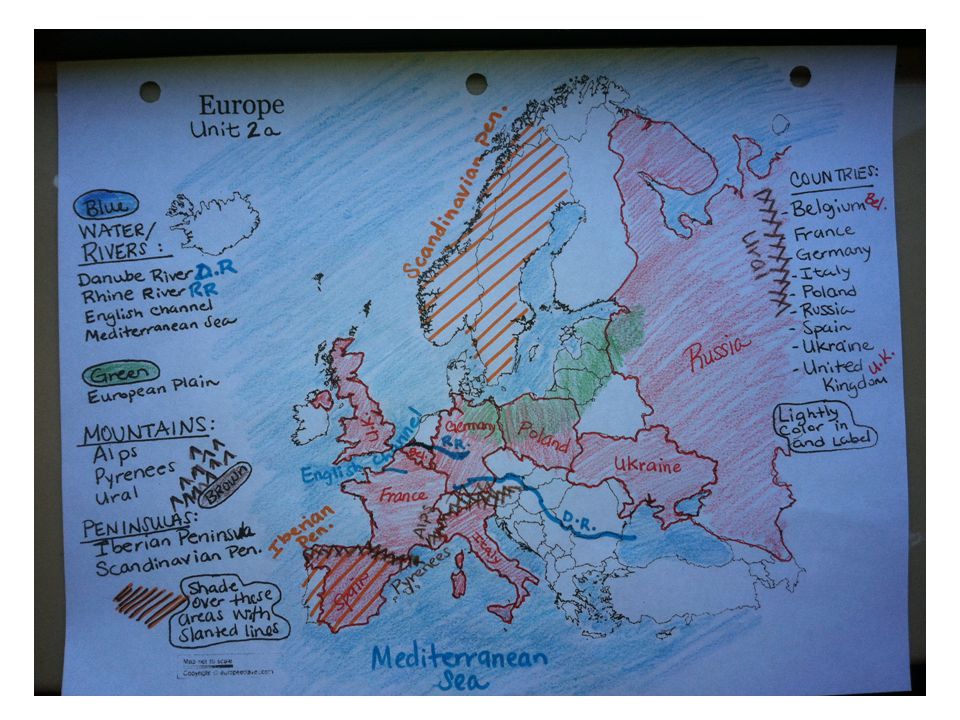 Europe
Unit 2a
Blue
WATER/
RIVERS:
Danube River D.R
Rhine River RR
English channel
Mediterranean Sea
Green
European Plain
MOUNTAINS:
Alps
Pyrenees
Ural
BROWN
PENINSULAS:
Iberian Peninsula
Scandinavian Pen.
Shade
over these
areas with
slanted lines
Map not to scale
Copyright © europeedave.com
Scandinavian Pen.
Ural
Russia
U.K
English Channel
Germany
Poland
RR.
Bel.
Ukraine
France
D.R.
Alps
Italy
Iberian
Pen.
Pyrenees
Spain
Mediterranean
Sea
COUNTRIES:
- Belgium Bel.
- France
- Germany
- Italy
- Poland
- Russia
- Spain
- Ukraine
- United U.K.
Kingdom
Lightly
Color in
and Label